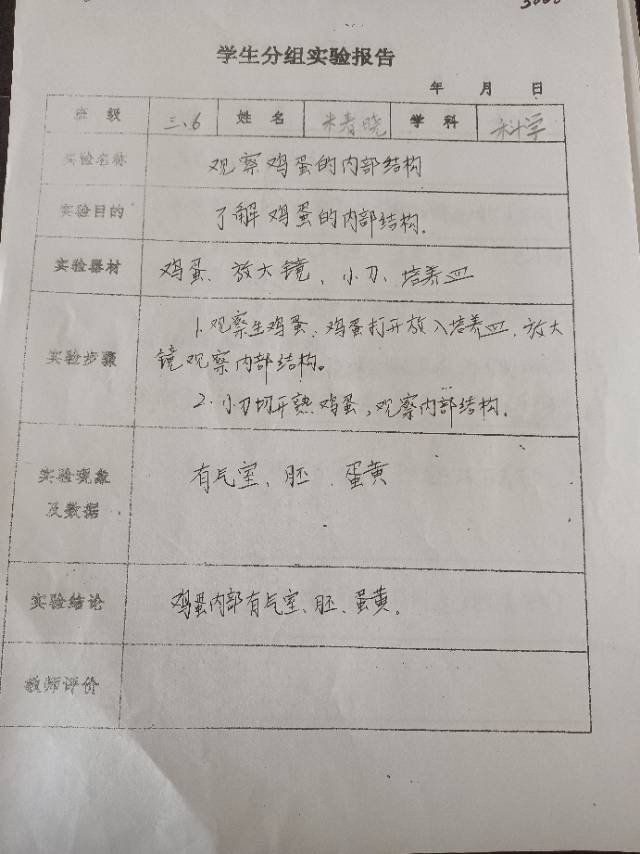 学生分组实验报告
年 月 日
班 级 三、6 姓 名 晓 学 科 科学
实验名称 观察鸡蛋的内部结构
实验目的 了解鸡蛋的内部结构.
实验器材 鸡蛋、放大镜、小刀、培养皿
1.观察生鸡蛋:鸡蛋打开放入培养皿.放大
实验步骤 镜观察内部结构。
2.小刀切开熟鸡蛋,观察内部结构.
实验现象 有气室、胚、蛋黄
及数据
实验结论 鸡蛋内部有气室、胚、蛋黄.
教师评价